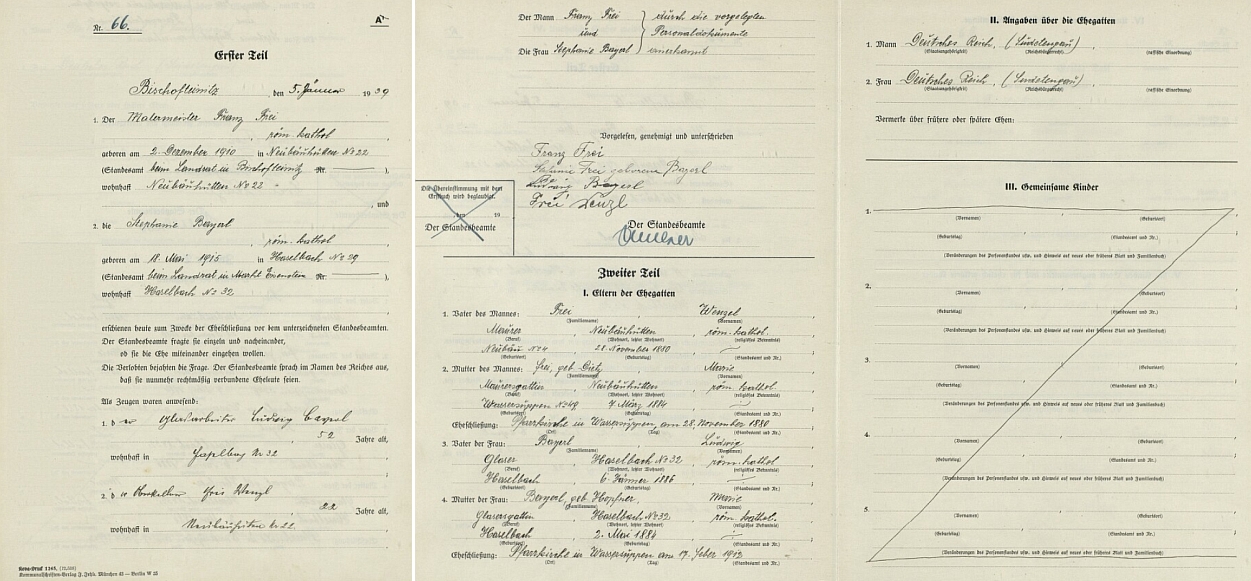 Nr. 66.
A
Erster Teil
Bischofteinitz, den 5. Jänner 1939
1. Der Malermeister Franz Frei
, röm. kathol
geboren am 2. Dezember 1910 in Neubäuhütten No 22
(Standesamt beim Landrat in Bischofteinitz Nr. ),
wohnhaft Neubäuhütten No 22
, und
2. die Stephanie Bayerl
, röm. kathol
geboren am 18. Mai 1915 in Haselbach No 29
(Standesamt beim Landrat in Markt Eisenstein Nr. ),
wohnhaft Haselbach No 32
erschienen heute zum Zwecke der Eheschließung vor dem unterzeichneten Standesbeamten.
Der Standesbeamte fragte sie einzeln und nacheinander,
ob sie die Ehe miteinander eingehen wollen.
Die Verlobten bejahten die Frage. Der Standesbeamte sprach im Namen des Reiches aus,
daß sie nunmehr rechtmäßig verbundene Eheleute seien.
Als Zeugen waren anwesend:
1. der Glasarbeiter Ludwig Bayerl
52 Jahre alt,
wohnhaft in Haselbach Nr 32
2. der Frei Wenzl
22 Jahre alt,
wohnhaft in Neubäuhütten Nr 22
Kommunalschriften-Verlag J. Jehle, München 43 — Berlin W 35
Der Mann Franz Frei } durch die vorgelegten
und Personaldokumente
Die Frau Stephanie Bayerl anerkannt
Vorgelesen, genehmigt und unterschrieben
Franz Frei
Stefanie Frei geborene Bayerl
Ludwig Bayerl
Frei Wenzl
Die Übereinstimmung mit dem
Erstbuch wird beglaubigt.
, den 19
Der Standesbeamte
Der Standesbeamte
Zweiter Teil
I. Eltern der Ehegatten
1. Vater des Mannes: Frei, Wenzel
(Familienname) (Vornamen)
Maurer, Neubäuhütten, röm. kathol.
(Beruf) (Wohnort, letzter Wohnort) (religiöses Bekenntnis)
Neubäu No 4, 28. November 1880
(Geburtsort) (Geburtstag) (Standesamt und Nr.)
2. Mutter des Mannes: Frei, geb. Dietz, Marie
(Familienname) (Vornamen)
Maurersgattin, Neubäuhütten, röm. kathol
(Beruf) (Wohnort, letzter Wohnort) (religiöses Bekenntnis)
Wassersuppen No 49, 7. März 1884
(Geburtsort) (Geburtstag) (Standesamt und Nr.)
Eheschließung: Pfarrkirche in Wassersuppen, am 28. November 1880
(Ort) (Tag) (Standesamt und Nr.)
3. Vater der Frau: Bayerl, Ludwig
(Familienname) (Vornamen)
Glaser, Haselbach No 32, röm. kathol.
(Beruf) (Wohnort, letzter Wohnort) (religiöses Bekenntnis)
Haselbach, 6. Jänner 1886
(Geburtsort) (Geburtstag) (Standesamt und Nr.)
4. Mutter der Frau: Bayerl, geb. Hopfner, Marie
(Familienname) (Vornamen)
Glasersgattin, Haselbach No 32, röm. kathol.
(Beruf) (Wohnort, letzter Wohnort) (religiöses Bekenntnis)
Haselbach, 2. Mai 1884
(Geburtsort) (Geburtstag) (Standesamt und Nr.)
Eheschließung: Pfarrkirche in Wassersuppen am 17. Feber 1912
(Ort) (Tag) (Standesamt und Nr.)
II. Angaben über die Ehegatten
1. Mann Deutsches Reich, (Sudetengau),
(Staatsangehörigkeit) (Reichsbürgerrecht) (rassische Einordnung)
2. Frau Deutsches Reich, (Sudetengau),
(Staatsangehörigkeit) (Reichsbürgerrecht) (rassische Einordnung)
Vermerke über frühere oder spätere Ehen:
III. Gemeinsame Kinder
1.
(Vornamen) (Geburtsort)
(Geburtstag) (Standesamt und Nr.)
(Veränderungen des Personenstandes usw. und Hinweis auf neues oder früheres Blatt und Familienbuch)
2.
(Vornamen) (Geburtsort)
(Geburtstag) (Standesamt und Nr.)
(Veränderungen des Personenstandes usw. und Hinweis auf neues oder früheres Blatt und Familienbuch)
3.
(Vornamen) (Geburtsort)
(Geburtstag) (Standesamt und Nr.)
(Veränderungen des Personenstandes usw. und Hinweis auf neues oder früheres Blatt und Familienbuch)
4.
(Vornamen) (Geburtsort)
(Geburtstag) (Standesamt und Nr.)
(Veränderungen des Personenstandes usw. und Hinweis auf neues oder früheres Blatt und Familienbuch)
5.
(Vornamen) (Geburtsort)
(Geburtstag) (Standesamt und Nr.)
(Veränderungen des Personenstandes usw. und Hinweis auf neues oder früheres Blatt und Familienbuch)